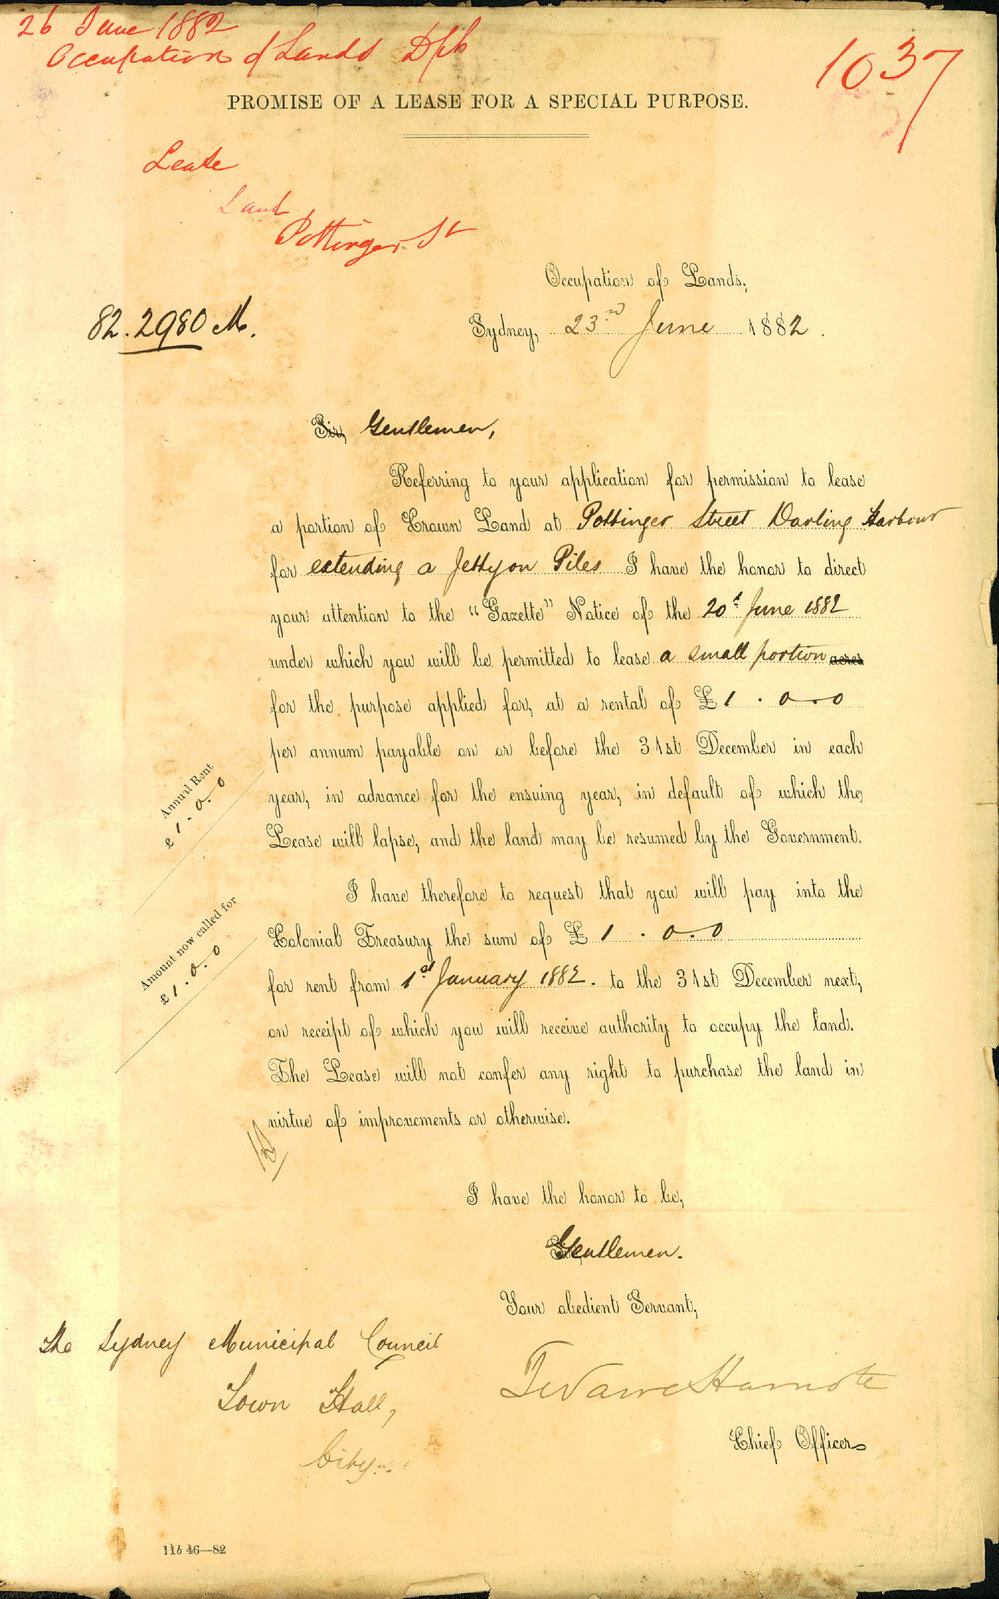 26 June 1882
Occupation of Lands Dpt
1037
PROMISE OF A LEASE FOR A SPECIAL PURPOSE.
Lease
Land
Pottinger St
Occupation of Lands,
82.2980 M.
Sydney, 23rd June 1882.
Sir, Gentlemen,
Referring to your application for permission to lease
a portion of Crown Land at Pottinger Street Darling Harbour
for extending a Jetty on Piles I have the honor to direct
your attention to the "Gazette" Notice of the 20th June 1882
under which you will be permitted to lease a small portion acres
for the purpose applied for, at a rental of £1.0.0
per annum payable on or before the 31st December in each
year, in advance for the ensuing year, in default of which the
Lease will lapse, and the land may be resumed by the Government.
Annual Rent
£1.0.0
I have therefore to request that you will pay into the
Colonial Treasury the sum of £1.0.0
for rent from 1st January 1882. to the 31st December next,
on receipt of which you will receive authority to occupy the land.
The Lease will not confer any right to purchase the land in
virtue of improvements or otherwise.
Amount now called for
£1.0.0
I have the honor to be,
Gentlemen.
Your obedient Servant,
The Sydney Municipal Council
Town Hall,
City
Chief Officer
11b 46—82